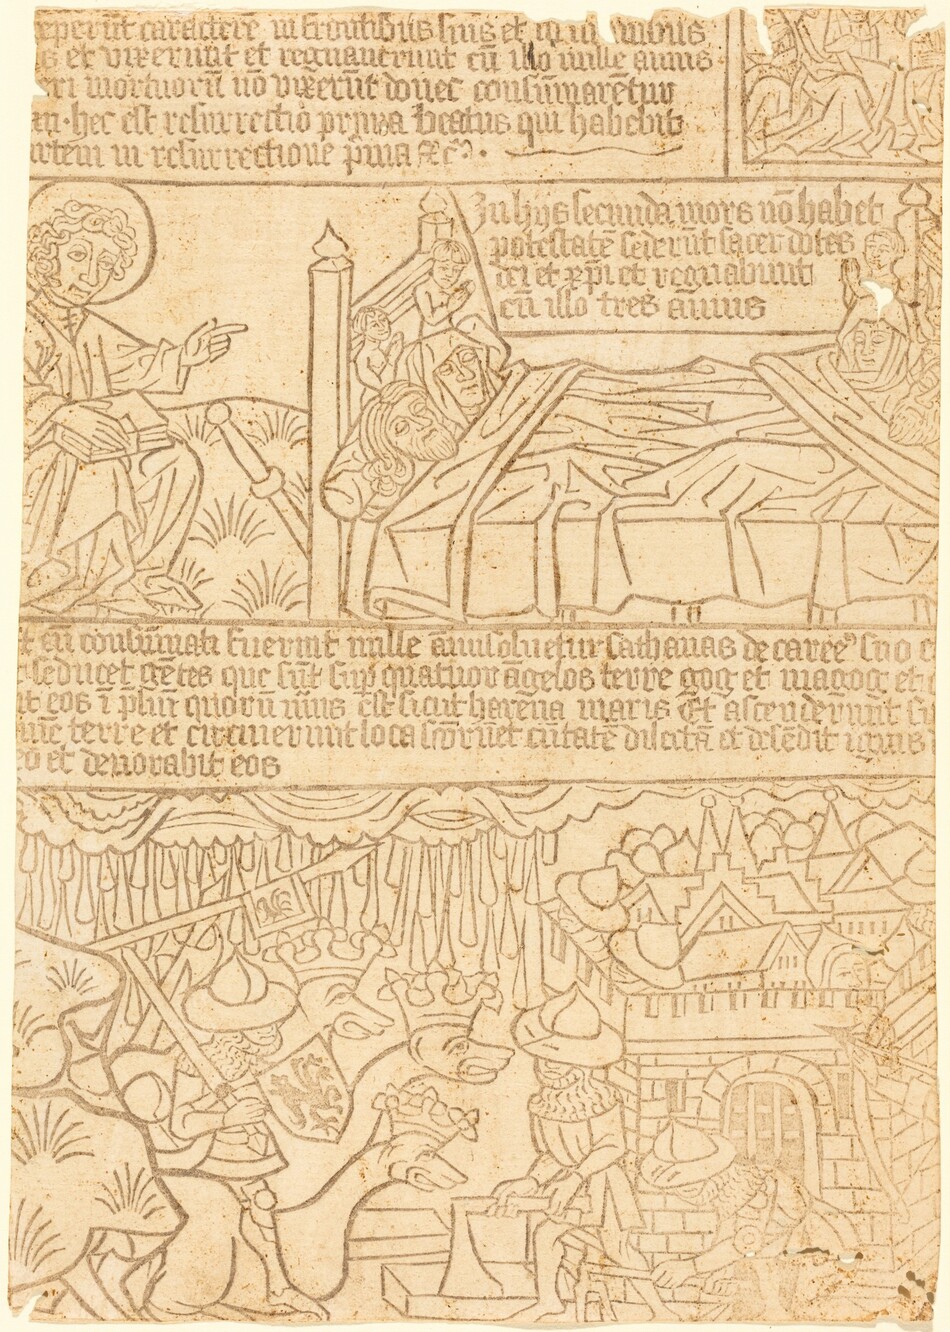 eperūt caractere in frontibus suis et in manibus
s et vixerunt et regnaverunt cū illo mille annis
ri mortuorū nō vixerūt donec consūmarētur
an · hec est resurrectio prima beatus qui habebit
artem in resurrectione p̄ma &c̄ ·
In hijs secunda mors nō habet
potestatē sederūt sacerdotes
dei et xp̄i et regnabunt
cū illo tres annis
t cū consūmati fuerint mille āni soluetur sathanas de carcē suo
seducet gētes que sūt sup quatuor āgelos terre gog et magog et
it eos ī p̄liū quorū nūs est sicut harena maris Et ascenderunt
terre et circuierunt loca scōrū et ciuitatē dilectā et desēdit ignis
o et deuorabit eos